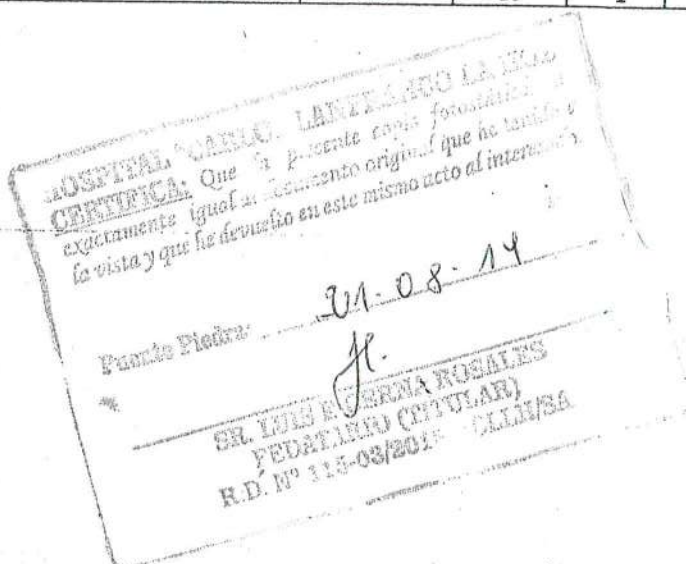 HOSPITAL "CARLOS LANFRANCO LA HOZ
CERTIFICA: Que la presente copia fotostática
exactamente igual al documento original que he tenido a
la vista y que he devuelto en este mismo acto al interesado.
Puente Piedra: 21.08.14
SR. LUIS E SERNA ROSALES
FEDATARIO (TITULAR)
R.D. Nº 115-03/201 CLLH/SA